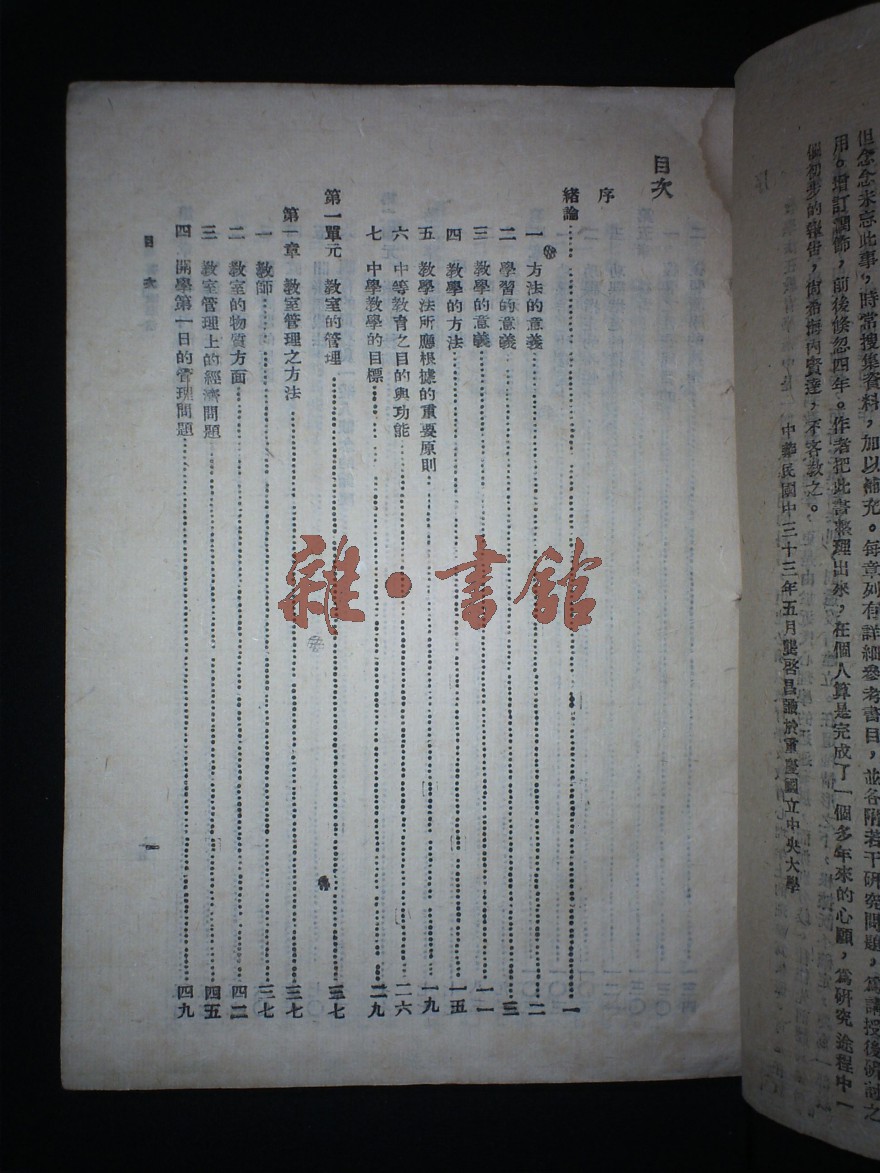 但念念未忘此事，時常搜集資料，加以補充。每章列有詳細參考書目，並各附若干研究問題，爲講授後研討之
用。增訂調節，前後倏忽四年。作者把此書整理出來，在個人算是完成了一個多年來的心願，爲研究途程中一
個初步的報告，尙希海內賢達，不客敎之。
中華民國中三十三年五月龔啓昌識於重慶國立中央大學
目次
序
緒論 一
一 方法的意義 二
二 學習的意義 三
三 敎學的意義 一一
四 敎學的方法 一五
五 敎學法所應根據的重要原則 一九
六 中等敎育之目的與功能 二六
七 中學敎學的目標 二九
第一單元 敎室的管理 三七
第一章 敎室管理之方法 三七
一 敎師 三七
二 敎室的物質方面 四二
三 敎室管理上的經濟問題 四五
四 開學第一日的管理問題 四九
目次
一
雜·書館